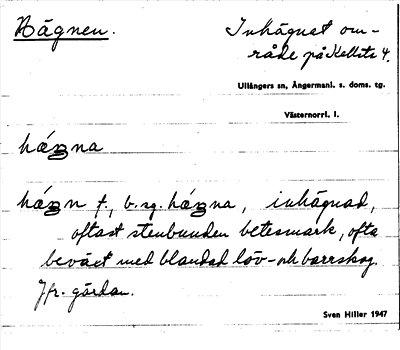 Hägnen. Inhägnat om-
råde på Kellsta 4.
Ullångers sn, Ångermanl. s. doms. tg.
Västernorrl. l.
hágna
hágn f., b. sg. hágna, inhägnad,
oftast stenbunden betesmark, ofta
beväxt med blandad löv- och barrskog.
Jfr. gården.
Sven Hiller 1947